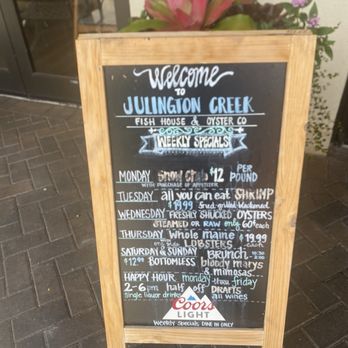 Welcome
TO
JULINGTON CREEK
FISH HOUSE & OYSTER CO
WEEKLY SPECIALS
MONDAY Snow Crab $12 PER POUND
WITH PURCHASE OF APPETIZER
TUESDAY all you can eat SHRIMP
$19.99 fried-grilled-blackened
WEDNESDAY FRESHLY SHUCKED OYSTERS
STEAMED or RAW only 60¢ each
THURSDAY Whole maine $19.99
LOBSTERS each
SATURDAY & SUNDAY Brunch
$12.99 BOTTOMLESS bloody marys
& mimosas
HAPPY HOUR monday thru friday
2-6pm half off DRAFTS
single liquor drinks all wines
Coors
LIGHT
WEEKLY SPECIALS DINE IN ONLY